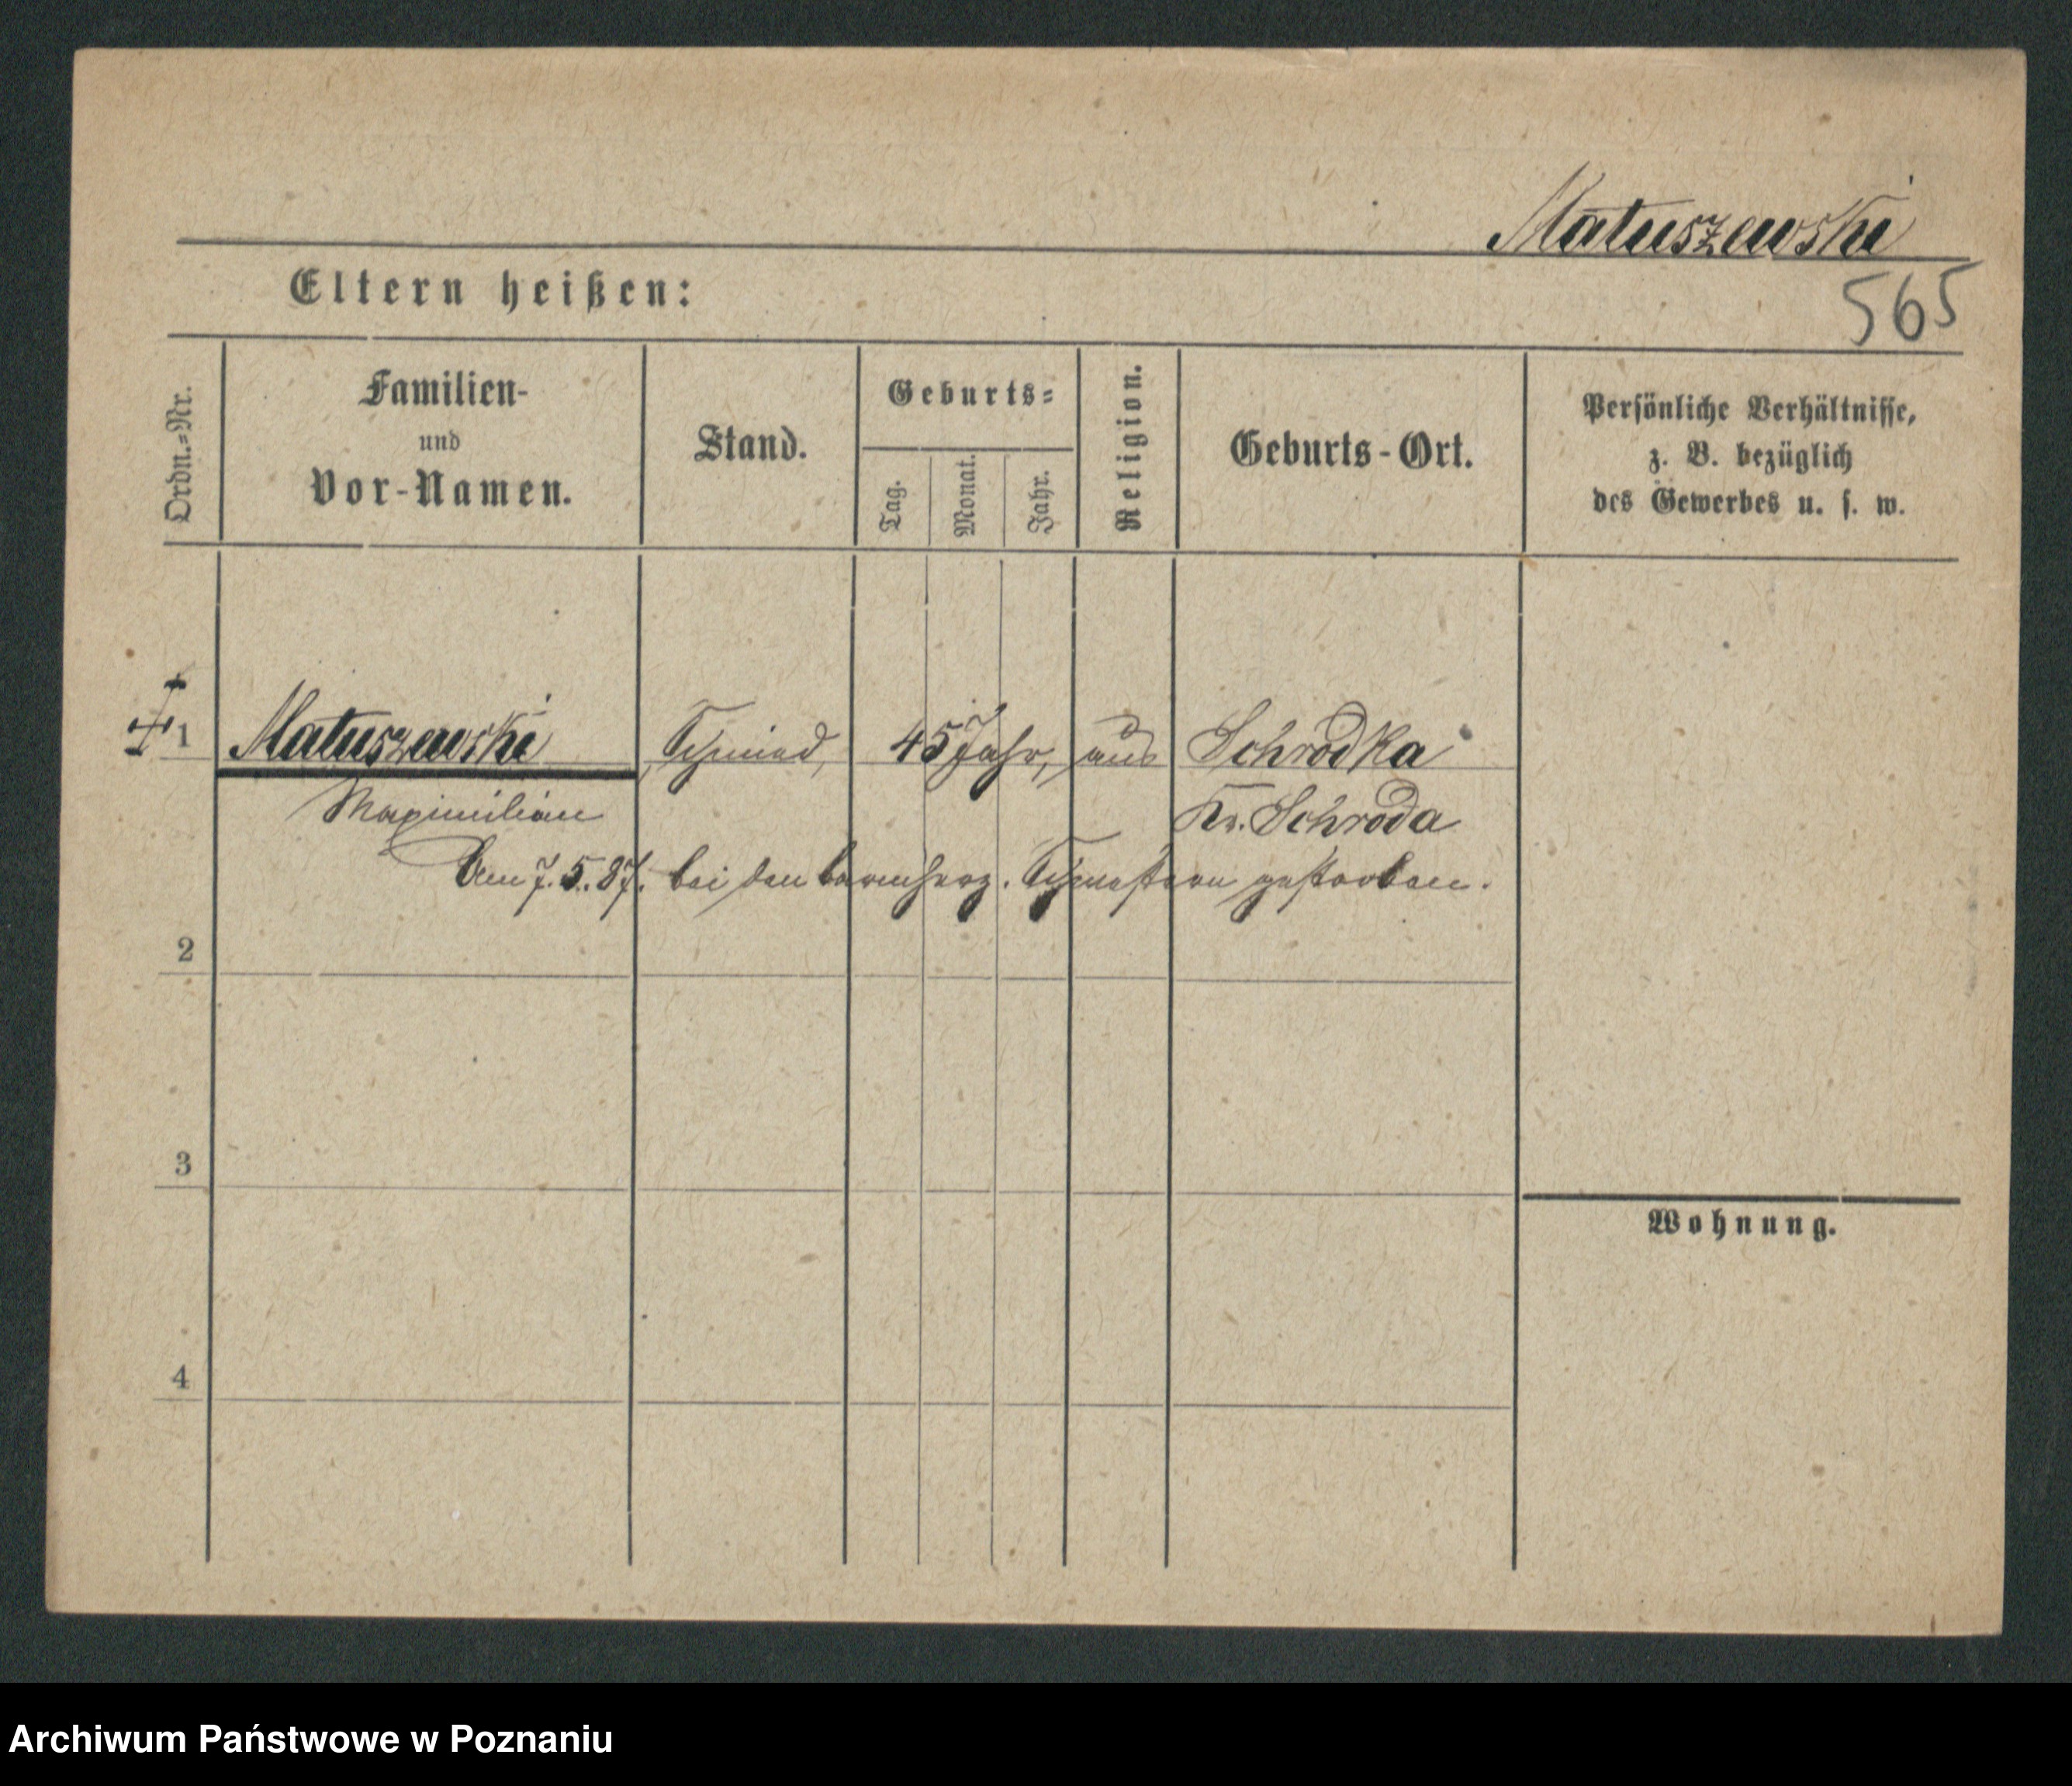 Matuszewski
Eltern heißen:
565
Ordn.=Nr.
Familien-
und
Vor-Namen.
Stand.
Geburts=
Tag.
Monat.
Jahr.
Religion.
Geburts-Ort.
Persönliche Verhältnisse,
z. B. bezüglich
des Gewerbes u. s. w.
1 Matuszewski Schmied, 45 Jahr, aus Schrodka
Maximilian Kr. Schroda
Am 7.5.87. bei den barmherz. Schwestern gestorben.
2
3
Wohnung.
4
Archiwum Państwowe w Poznaniu